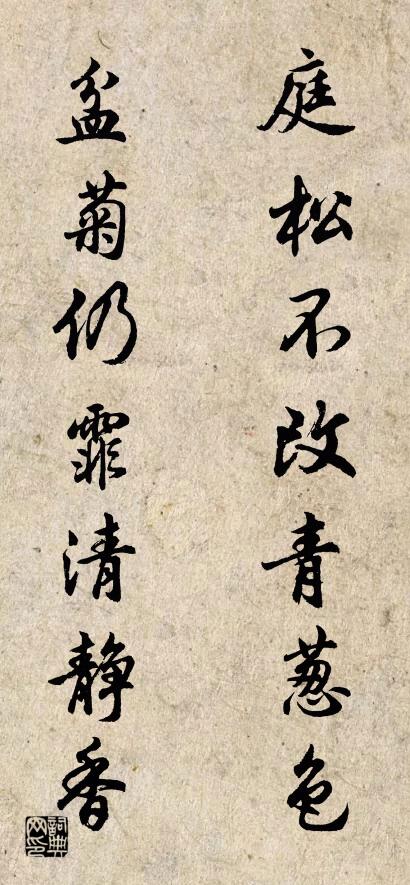 庭松不改青葱色
盆菊仍霏清静香
詞典网印